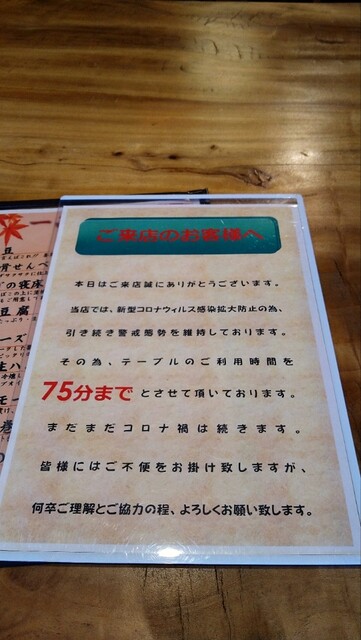 ご来店のお客様へ
本日はご来店誠にありがとうございます。
当店では、新型コロナウィルス感染拡大防止の為、
引き続き警戒態勢を維持しております。
その為、テーブルのご利用時間を
75分まで とさせて頂いております。
まだまだコロナ禍は続きます。
皆様にはご不便をお掛け致しますが、
何卒ご理解とご協力の程、よろしくお願い致します。